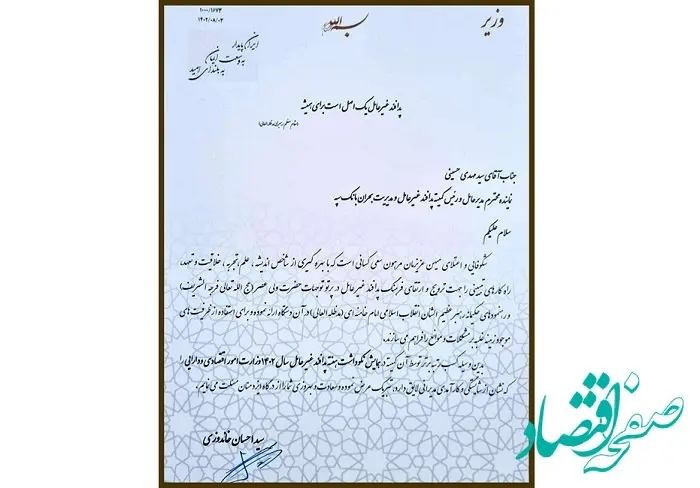 ۱۰۰۰/۱۶۷۳
۱۴۰۲/۰۸/۰۳
بسم الله
وزیر
ایران پایدار
به وسعت ایمان
به بلندای امید
پدافند غیرعامل یک اصل است برای همیشه
(مقام معظم رهبری مدظله العالی)
جناب آقای سید مهدی حسینی
نماینده محترم مدیرعامل و رئیس کمیته پدافند غیرعامل و مدیریت بحران بانک سپه
سلام علیکم
شکوفایی و اعتلای میهن عزیزمان مرهون سعی کسانی است که با بهره گیری از شاخص اندیشه، علم، تجربه، خلاقیت و تعهد،
راه کارهای تبیینی را جهت ترویج و ارتقای فرهنگ پدافند غیرعامل در پرتو توجهات حضرت ولی عصر (عج الله تعالی فرجه الشریف)
و رهنمودهای حکیمانه رهبر عظیم الشان انقلاب اسلامی امام خامنه ای (مدظله العالی) در آن دستگاه ارائه نموده و برای استفاده از ظرفیت های
موجود زمینه غلبه بر مشکلات و موانع را فراهم می سازند.
بدین وسیله کسب رتبه برتر توسط آن کمیته در همایش نکوداشت هفته پدافند غیرعامل سال ۱۴۰۲ وزارت امور اقتصادی و دارایی را
که نشان از شایستگی و کارآمدی مدیرانی لایق دارد، تبریک عرض نموده و سعادت و بهروزی شما را از درگاه ایزد منان مسئلت می نمایم.
سید احسان خاندوزی
صفحه اقتصاد